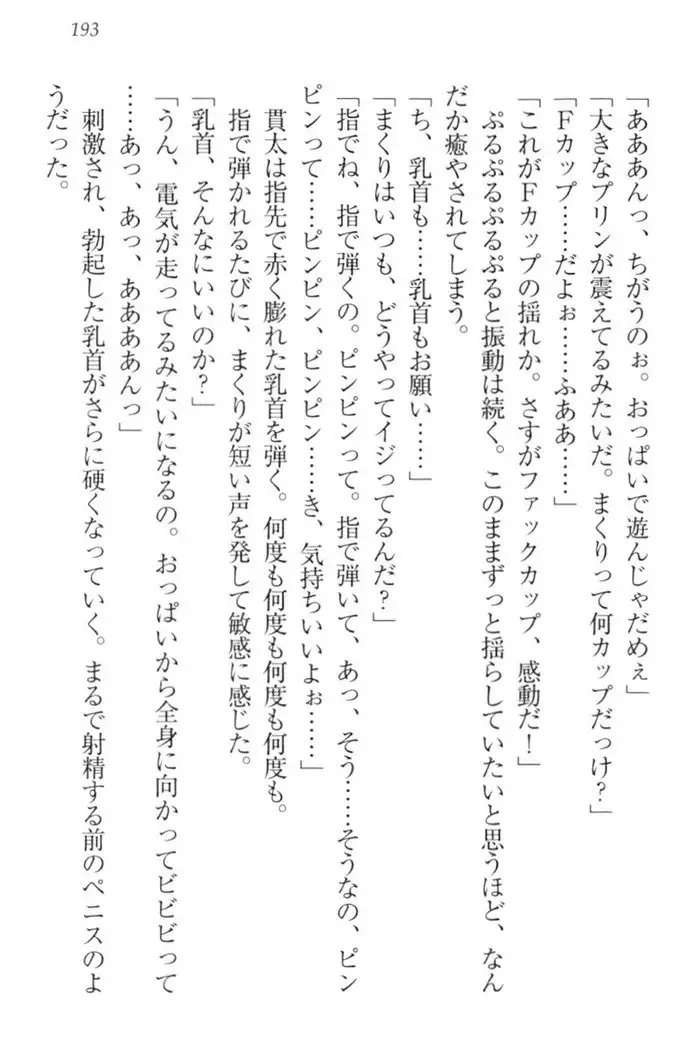 193
「あああんっ、ちがうのぉ。おっぱいで遊んじゃだめぇ」
「大きなプリンが震えてるみたいだ。まくりって何カップだっけ？」
「Ｆカップ……だよぉ……ふああ……」
「これがＦカップの揺れか。さすがファックカップ、感動だ！」
ぷるぷるぷるぷると振動は続く。このままずっと揺らしていたいと思うほど、なん
だか癒やされてしまう。
「ち、乳首も……乳首もお願い……」
「まくりはいつも、どうやってイジってるんだ？」
「指でね、指で弾くの。ピンピンって。指で弾いて、あっ、そう……そうなの、ピン
ピンって……ピンピン、ピンピン……き、気持ちいいよぉ……」
貫太は指先で赤く膨れた乳首を弾く。何度も何度も何度も何度も。
指で弾かれるたびに、まくりが短い声を発して敏感に感じた。
「乳首、そんなにいいのか？」
「うん、電気が走ってるみたいになるの。おっぱいから全身に向かってビビビって
……あっ、あっ、ああああんっ」
刺激され、勃起した乳首がさらに硬くなっていく。まるで射精する前のペニスのよ
うだった。